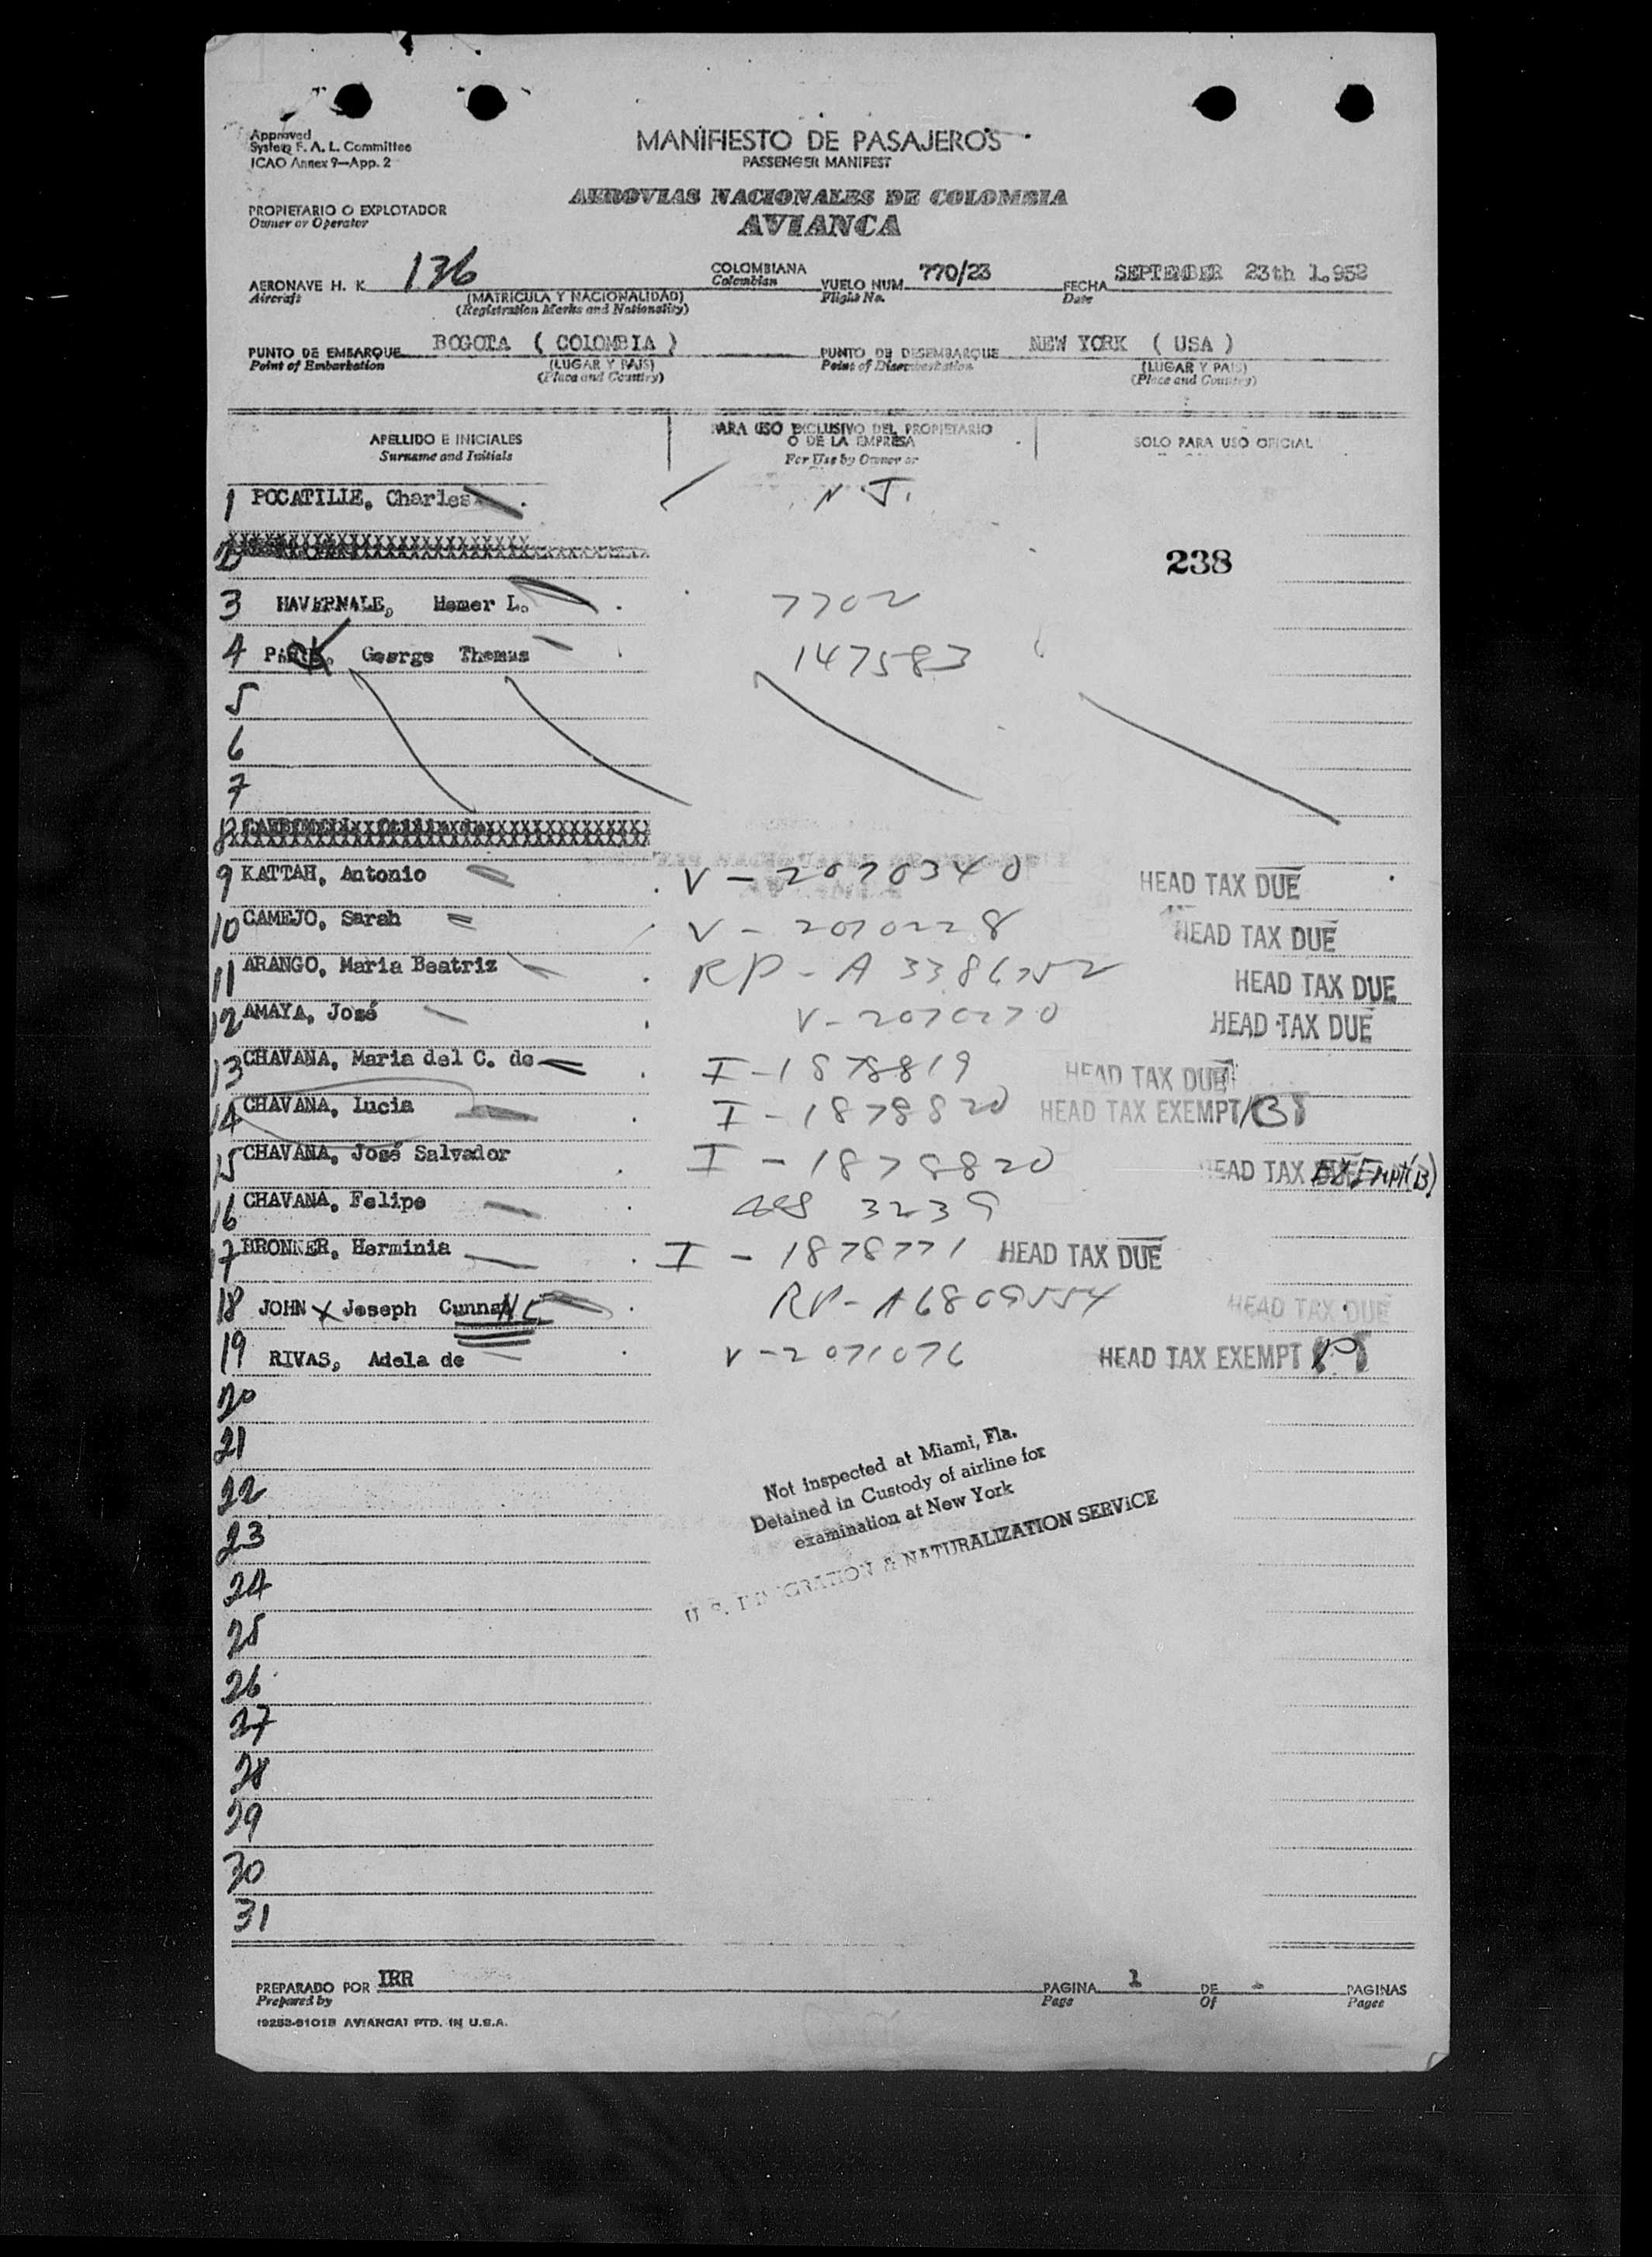 Approved
System F. A. L. Committee
ICAO Annex 9—App. 2
MANIFIESTO DE PASAJEROS
PASSENGER MANIFEST
AEROVIAS NACIONALES DE COLOMBIA
AVIANCA
PROPIETARIO O EXPLOTADOR
Owner or Operator
AERONAVE H. K. 136 COLOMBIANA VUELO NUM. 770/23 FECHA SEPTEMBER 23th 1.952
Aircraft (MATRICULA Y NACIONALIDAD) Colombian Flight No. Date
(Registration Marks and Nationality)
PUNTO DE EMBARQUE BOGOTA ( COLOMBIA ) PUNTO DE DESEMBARQUE NEW YORK ( USA )
Point of Embarkation (LUGAR Y PAIS) Point of Disembarkation (LUGAR Y PAIS)
(Place and Country) (Place and Country)
APELLIDO E INICIALES PARA USO EXCLUSIVO DEL PROPIETARIO SOLO PARA USO OFICIAL
Surname and Initials O DE LA EMPRESA
For Use by Owner or
1 POCATILLE, Charles N.J.
2
238
3 HAVERNALE, Homer L. 7702
4 George Thomas 147583
5
6
7
8
9 KATTAH, Antonio V-2070340 HEAD TAX DUE
10 CAMEJO, Sarah V-2070228 HEAD TAX DUE
11 ARANGO, Maria Beatriz RP-A3386752 HEAD TAX DUE
12 AMAYA, José V-2070270 HEAD TAX DUE
13 CHAVANA, Maria del C. de I-1878819 HEAD TAX DUE
14 CHAVANA, Lucia I-1878820 HEAD TAX EXEMPT (B)
15 CHAVANA, José Salvador I-1878820 HEAD TAX EXEMPT (B)
16 CHAVANA, Felipe 3239
17 BRONNER, Herminia I-1878771 HEAD TAX DUE
18 JOHN X Joseph RP-A6809554 HEAD TAX DUE
19 RIVAS, Adela de V-2071076 HEAD TAX EXEMPT
20
21
22
23
24
25
26
27
28
29
30
31
Not inspected at Miami, Fla.
Detained in Custody of airline for
examination at New York
U. S. IMMIGRATION & NATURALIZATION SERVICE
PREPARADO POR IRR PAGINA 1 DE - PAGINAS
Prepared by Page Of Pages
19253-81018 AVIANCA1 PTD. IN U.S.A.